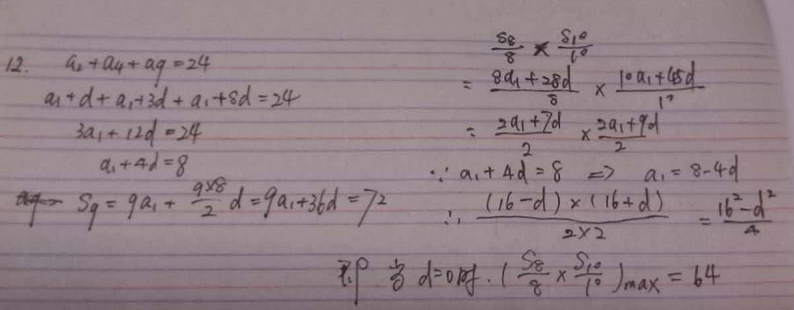 12. a₂+a₄+a9=24
a₁+d+a₁+3d+a₁+8d=24
3a₁+12d=24
a₁+4d=8
S9=9a₁+\frac{9×8}{2}d=9a₁+36d=72
\frac{S8}{8}×\frac{S10}{10}
=\frac{8a₁+28d}{8}×\frac{10a₁+45d}{10}
=\frac{2a₁+7d}{2}×\frac{2a₁+9d}{2}
∵a₁+4d=8 => a₁=8-4d
∴\frac{(16-d)×(16+d)}{2×2}=\frac{16²-d²}{4}
即当d=0时.(\frac{S8}{8}×\frac{S10}{10})max=64